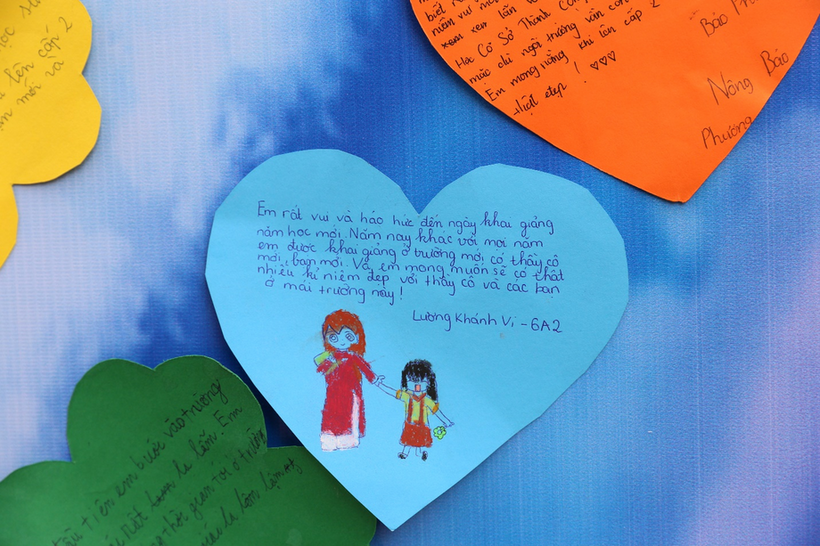 học
lên cấp 2
mới và
biết
niềm vui
xem xen lẫn
Học Cơ Sở Thành Công
mặc dù ngôi trường vẫn còn
Em mong rằng khi lên cấp 2
thật đẹp ! ♡♡♡
Nông Bảo
Phương
Em rất vui và háo hức đến ngày khai giảng
năm học mới. Năm nay khác với mọi năm
em được khai giảng ở trường mới, có thầy cô
mới, bạn mới. Và em mong muốn sẽ có thật
nhiều kỉ niệm đẹp với thầy cô và các bạn
ở mái trường này !
Lương Khánh Vi - 6A2
tiên em bước vào trường
rất là lớn. Em
thời gian tới ở trường
là lớn